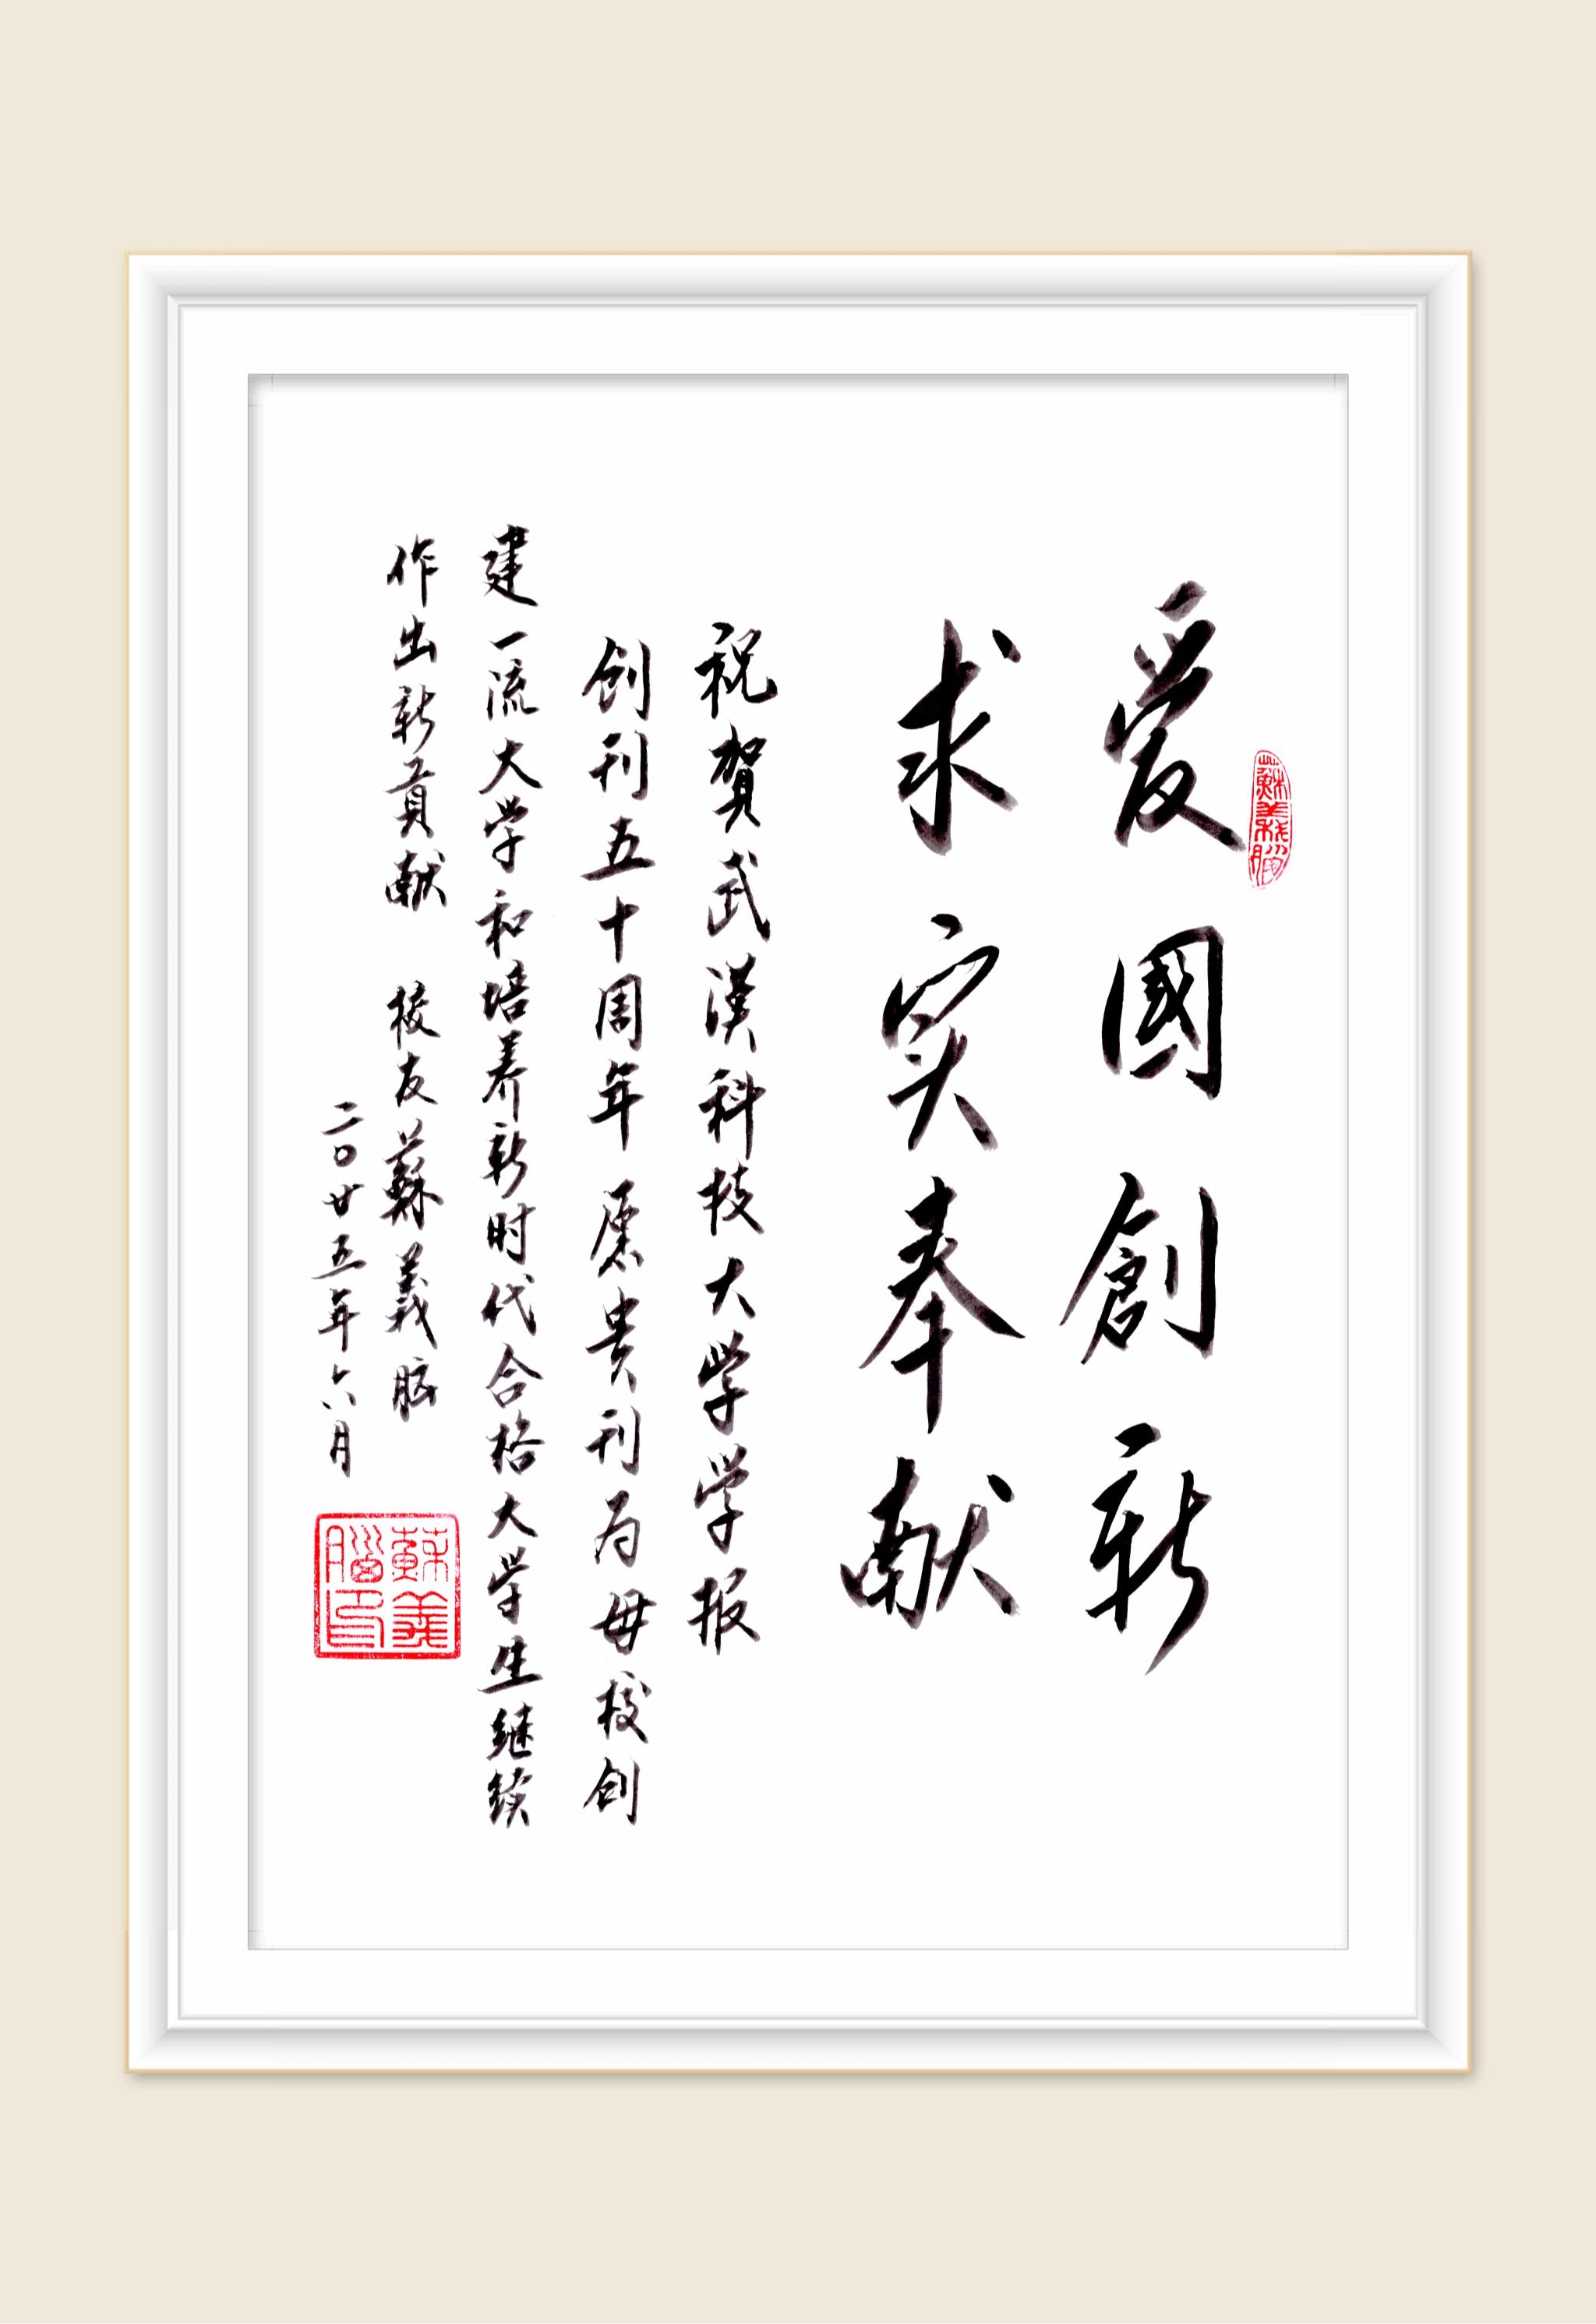 愛國創新
求实奉献
祝贺武漢科技大学学报
創刊五十周年 愿贵刊为母校创
建一流大学和培养新时代合格大学生继续
作出新贡献 校友蘇義脑
二〇廿五年六月
蘇義腦
蘇義腦印